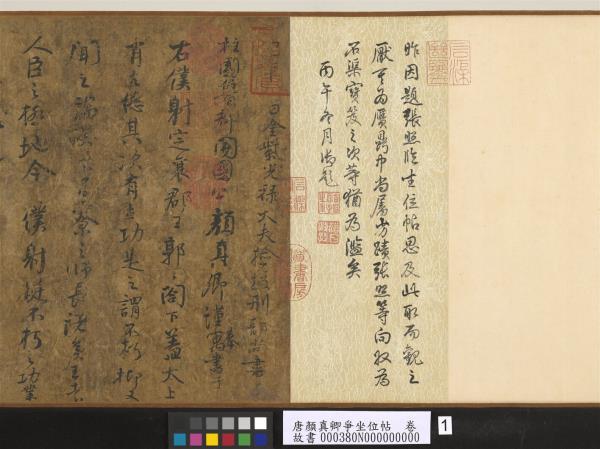 昨因題張照臨坐位帖思及此取而觀之
厭其為贋鼎 尚屬方蹟張照等向收為
石渠寶笈之次等猶為濫矣
丙午冬月御題
月金紫光祿大夫檢校刑部尚書
柱國魯郡開國公顏真卿謹寓書于
右僕射定襄郡王郭公閤下蓋太上
有立德其次有立功是之謂不朽抑又
聞之端揆者百寮之師長諸侯王者
人臣之極地今僕射挺不朽之功業
唐顏真卿爭坐位帖 卷
故書000380N000000000
1